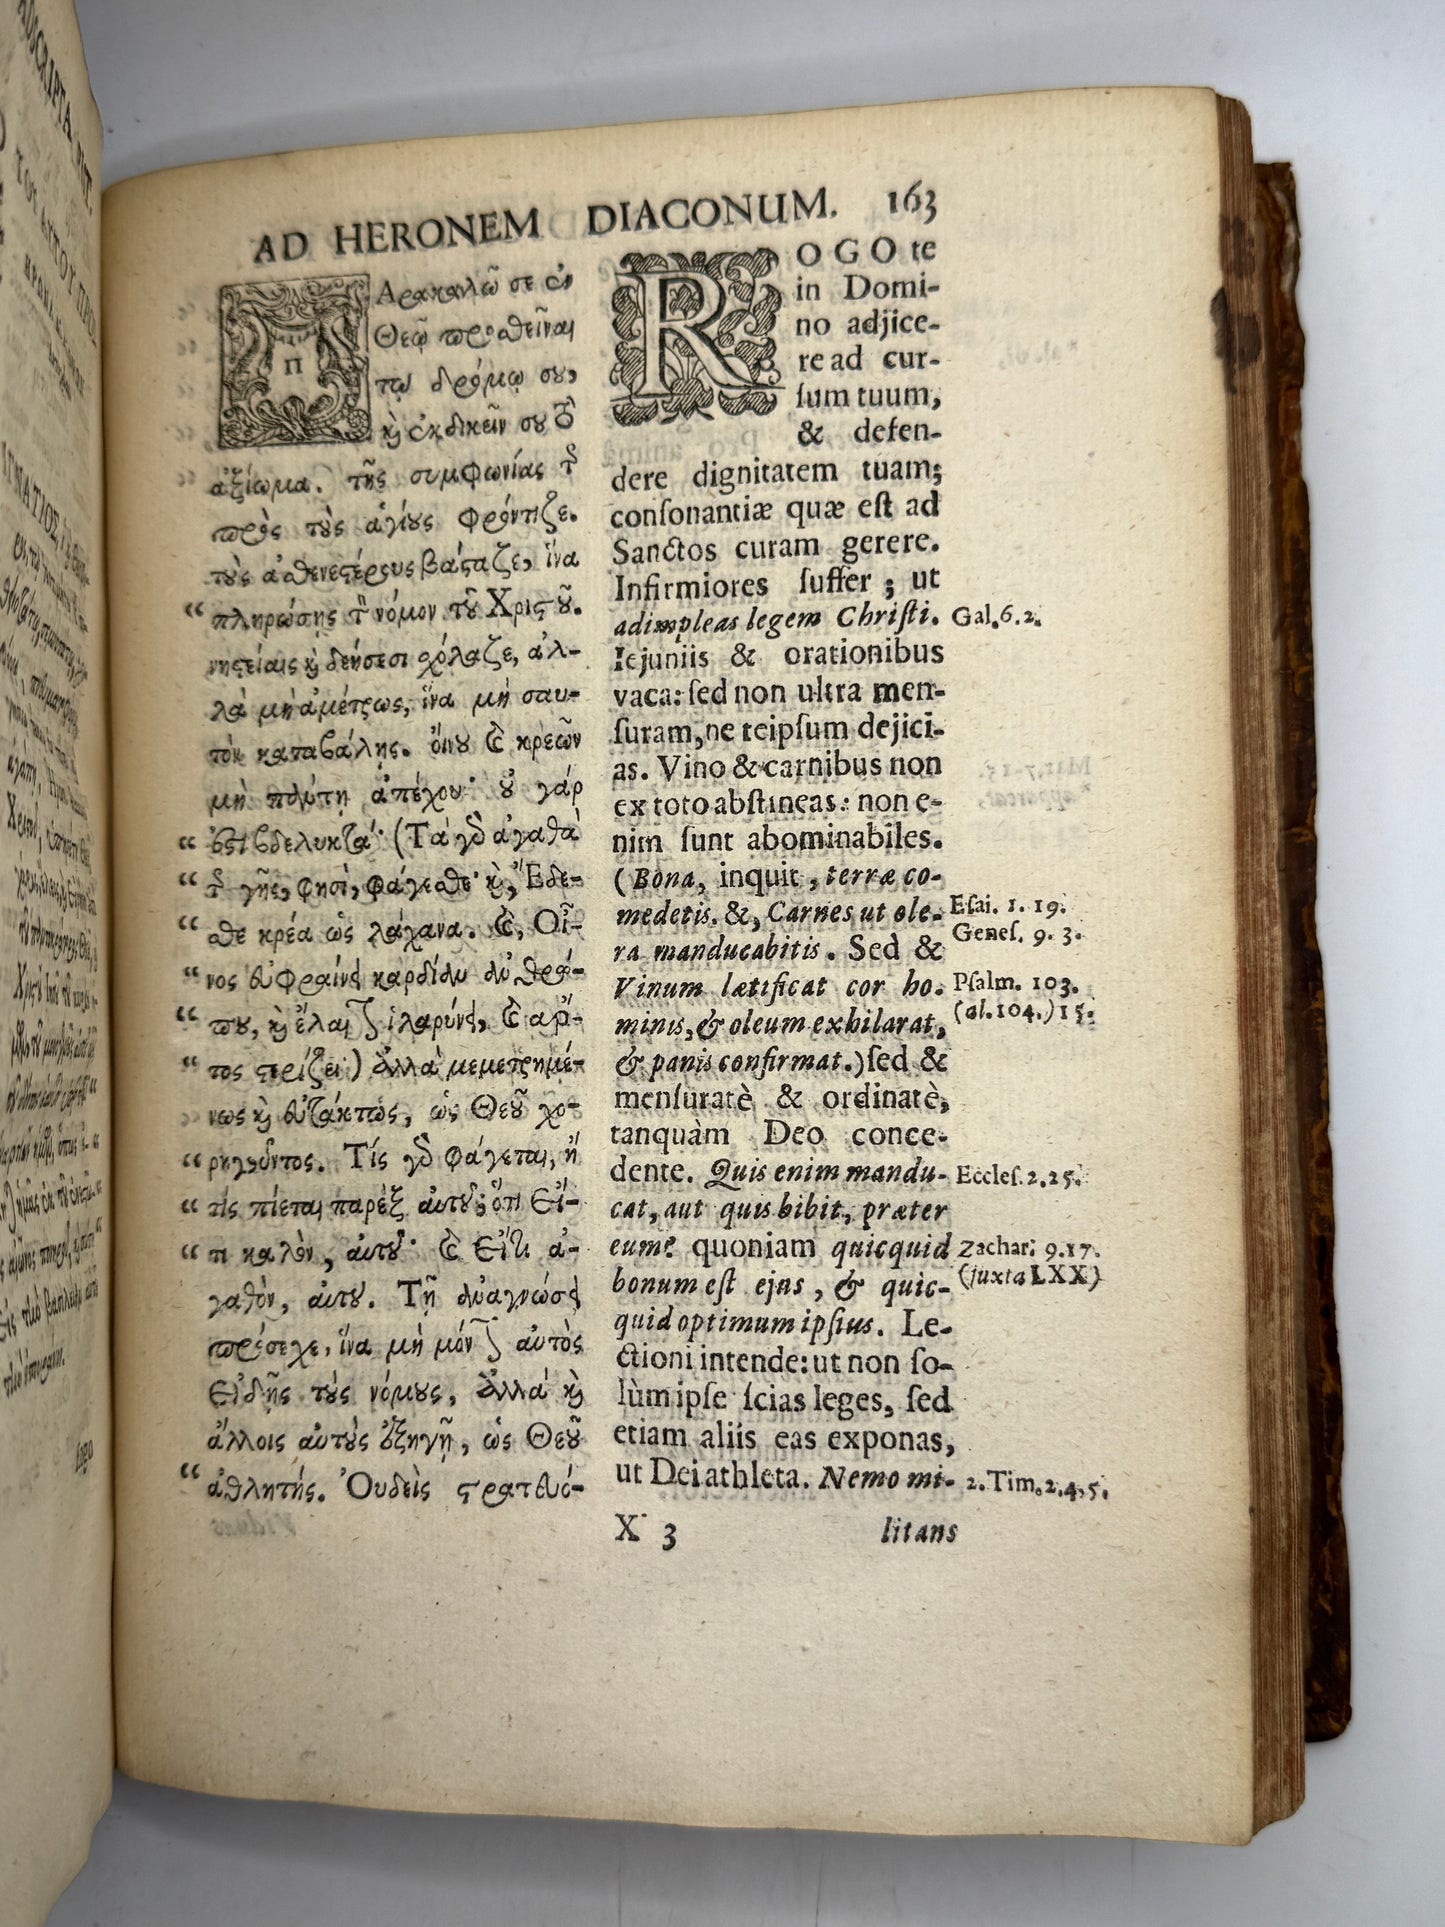 AD HERONEM DIACONUM. 163
ΠΑρακαλῶ σε ἐν
Θεῷ προσθεῖναι
τῷ δρόμῳ σου,
κὶ ἐκδικεῖν σου τὸ
ἀξίωμα. τῆς συμφωνίας τῆς
πρὸς τοὺς ἁγίους φρόντιζε.
τοὺς ἀσθενεστέρους βάσταζε, ἵνα
“ πληρώσῃς τὸν νόμον τοῦ Χριστοῦ.
νηστείαις κὶ δεήσεσι σχόλαζε, ἀλ-
λὰ μὴ ἀμέτρως, ἵνα μὴ σαυ-
τὸν καταβάλῃς. οἴνου καὶ κρεῶν
μὴ πάντῃ ἀπέχου· οὐ γάρ
“ ἐστι βδελυκτά· (Τὰ γὸ ἀγαθὰ
“ τῆς γῆς, φησὶ, φάγεσθε· κὶ, Ἔδε-
“ σθε κρέα ὡς λάχανα. καὶ, Οἶ-
“ νος εὐφραίνει καρδίαν ἀνθρώ-
“ που, κὶ ἔλαιον ἱλαρύνει, καὶ ἄρ-
“ τος στηρίζει) ἀλλὰ μεμετρημέ-
νως κὶ εὐτάκτως, ὡς Θεοῦ χο-
“ ρηγοῦντος. Τίς γὸ φάγεται, ἢ
“ τίς πίεται παρὲξ αὐτοῦ; ὅτι Εἴ-
“ τι καλὸν, αὐτοῦ· καὶ Εἴτι ἀ-
γαθὸν, αὐτοῦ. Τῇ ἀναγνώσει
πρόσεχε, ἵνα μὴ μόνον αὐτὸς
εἰδῇς τοὺς νόμους, ἀλλὰ κὶ
ἄλλοις αὐτοὺς ἐξηγῇ, ὡς Θεοῦ
“ ἀθλητής. Οὐδεὶς στρατευό-
ROGO te
in Domi-
no adjice-
re ad cur-
sum tuum,
& defen-
dere dignitatem tuam;
consonantiæ quæ est ad
Sanctos curam gerere.
Infirmiores suffer; ut
adimpleas legem Christi. Gal. 6. 2.
Iejuniis & orationibus
vaca: sed non ultra men-
suram, ne teipsum dejici-
as. Vino & carnibus non
ex toto abstineas: non e-
nim sunt abominabiles.
(Bona, inquit, terræ co-
medetis. &, Carnes ut ole- Esai. 1. 19.
ra manducabitis. Sed & Genes. 9. 3.
Vinum lætificat cor ho- Psalm. 103.
minis, & oleum exhilarat, (al. 104.) 15.
& panis confirmat.) sed &
mensuratè & ordinatè,
tanquàm Deo conce-
dente. Quis enim mandu- Eccles. 2. 25.
cat, aut quis bibit, præter
eum? quoniam quicquid Zachar. 9. 17.
bonum est ejus, & quic- (juxta LXX)
quid optimum ipsius. Le-
ctioni intende: ut non so-
lùm ipse scias leges, sed
etiam aliis eas exponas,
ut Dei athleta. Nemo mi- 2. Tim. 2. 4, 5.
X 3 litans